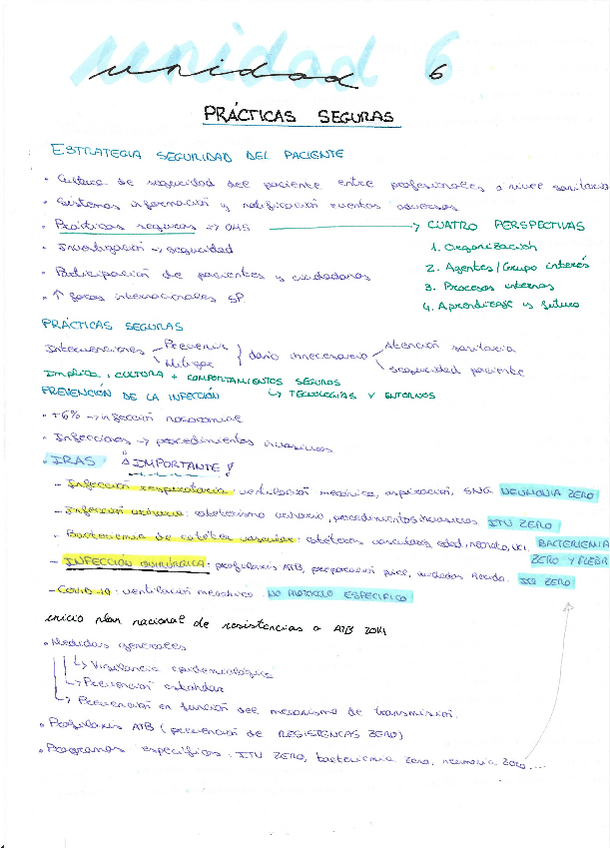 unidad 6
PRÁCTICAS SEGURAS
ESTRATEGIA SEGURIDAD DEL PACIENTE
• Cultura de seguridad del paciente entre profesionales a nivel sanitario
• Sistemas información y notificación eventos adversos
• Prácticas seguras → OMS → CUATRO PERSPECTIVAS
1. Organización
• Investigación → seguridad
2. Agentes/Grupo interés
• Participación de pacientes y ciudadanos
3. Procesos internos
• ↑ foros internacionales SP
4. Aprendizaje y futuro
PRÁCTICAS SEGURAS
Intervenciones – Prevenir – Mitigar } daño innecesario – Atención sanitaria – seguridad paciente
Implica: CULTURA + COMPORTAMIENTOS SEGUROS
↳ TECNOLOGÍAS Y ENTORNOS
PREVENCIÓN DE LA INFECCIÓN
6% → infección nosocomial
• Infecciones → procedimientos invasivos
• IRAS ¡IMPORTANTE!
– Infección respiratoria: ventilación mecánica, aspiración, SNG NEUMONIA ZERO
– Infección urinaria: cateterismo urinario, procedimientos invasivos ITU ZERO
– Bacteriemia de catéter vascular: catéteres vasculares, edad, neonato, UCI. BACTERIEMIA ZERO Y FLEBI
– INFECCIÓN QUIRÚRGICA: profilaxis ATB, preparación piel, cuidados herida. IQ ZERO
– Covid 19: ventilación mecánica. NO PROTOCOLO ESPECÍFICO
inicio plan nacional de resistencias a ATB 2014
• Medidas generales
↳ Vigilancia epidemiológica
↳ Prevención estándar
↳ Prevención en función del mecanismo de transmisión.
• Profilaxis ATB (prevención de RESISTENCIAS ZERO)
• Programas específicos: ITU ZERO, bacteriemia zero, neumonía zero....